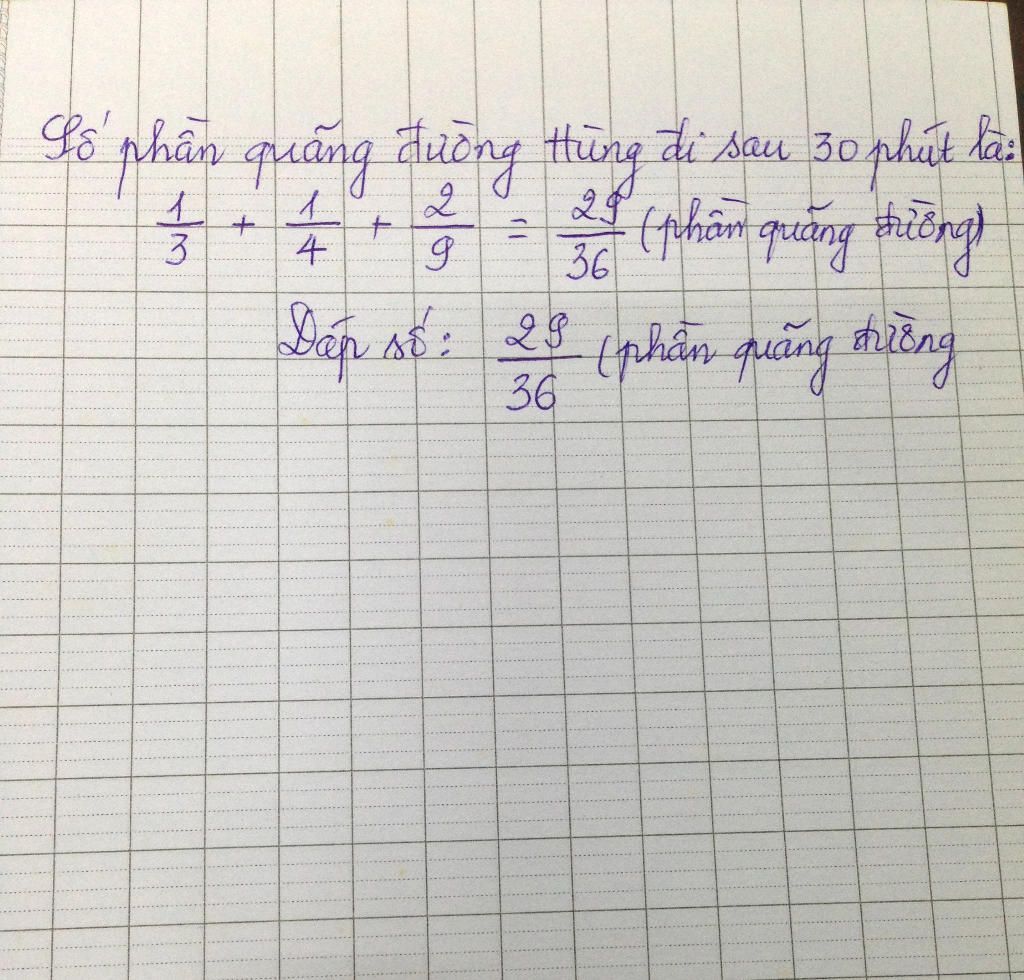 Số phần quãng đường Hùng đi sau 30 phút là:
1/3 + 1/4 + 2/9 = 29/36 (phần quãng đường)
Đáp số: 29/36 (phần quãng đường